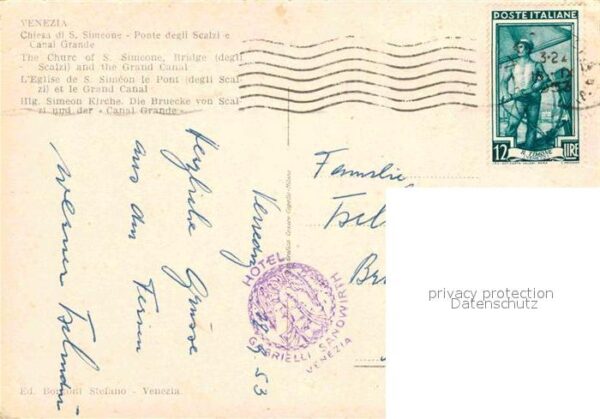 VENEZIA
Chiesa di S. Simeone - Ponte degli Scalzi e
Canal Grande
The Churc of S. Simeone, Bridge (degli
Scalzi) and the Grand Canal
L'Eglise de S. Siméon le Pont (degli Scal-
zi) et le Grand Canal
Hlg. Simeon Kirche. Die Bruecke von Scal-
zi und der « Canal Grande »
POSTE ITALIANE
12 LIRE
Familie
Venedig
53
Herzliche Grüsse
aus den
Ferien
Werner
HOTEL
GABRIELLI SANDWIRTH
VENEZIA
privacy protection
Datenschutz
Ed. Bortoni Stefano - Venezia.